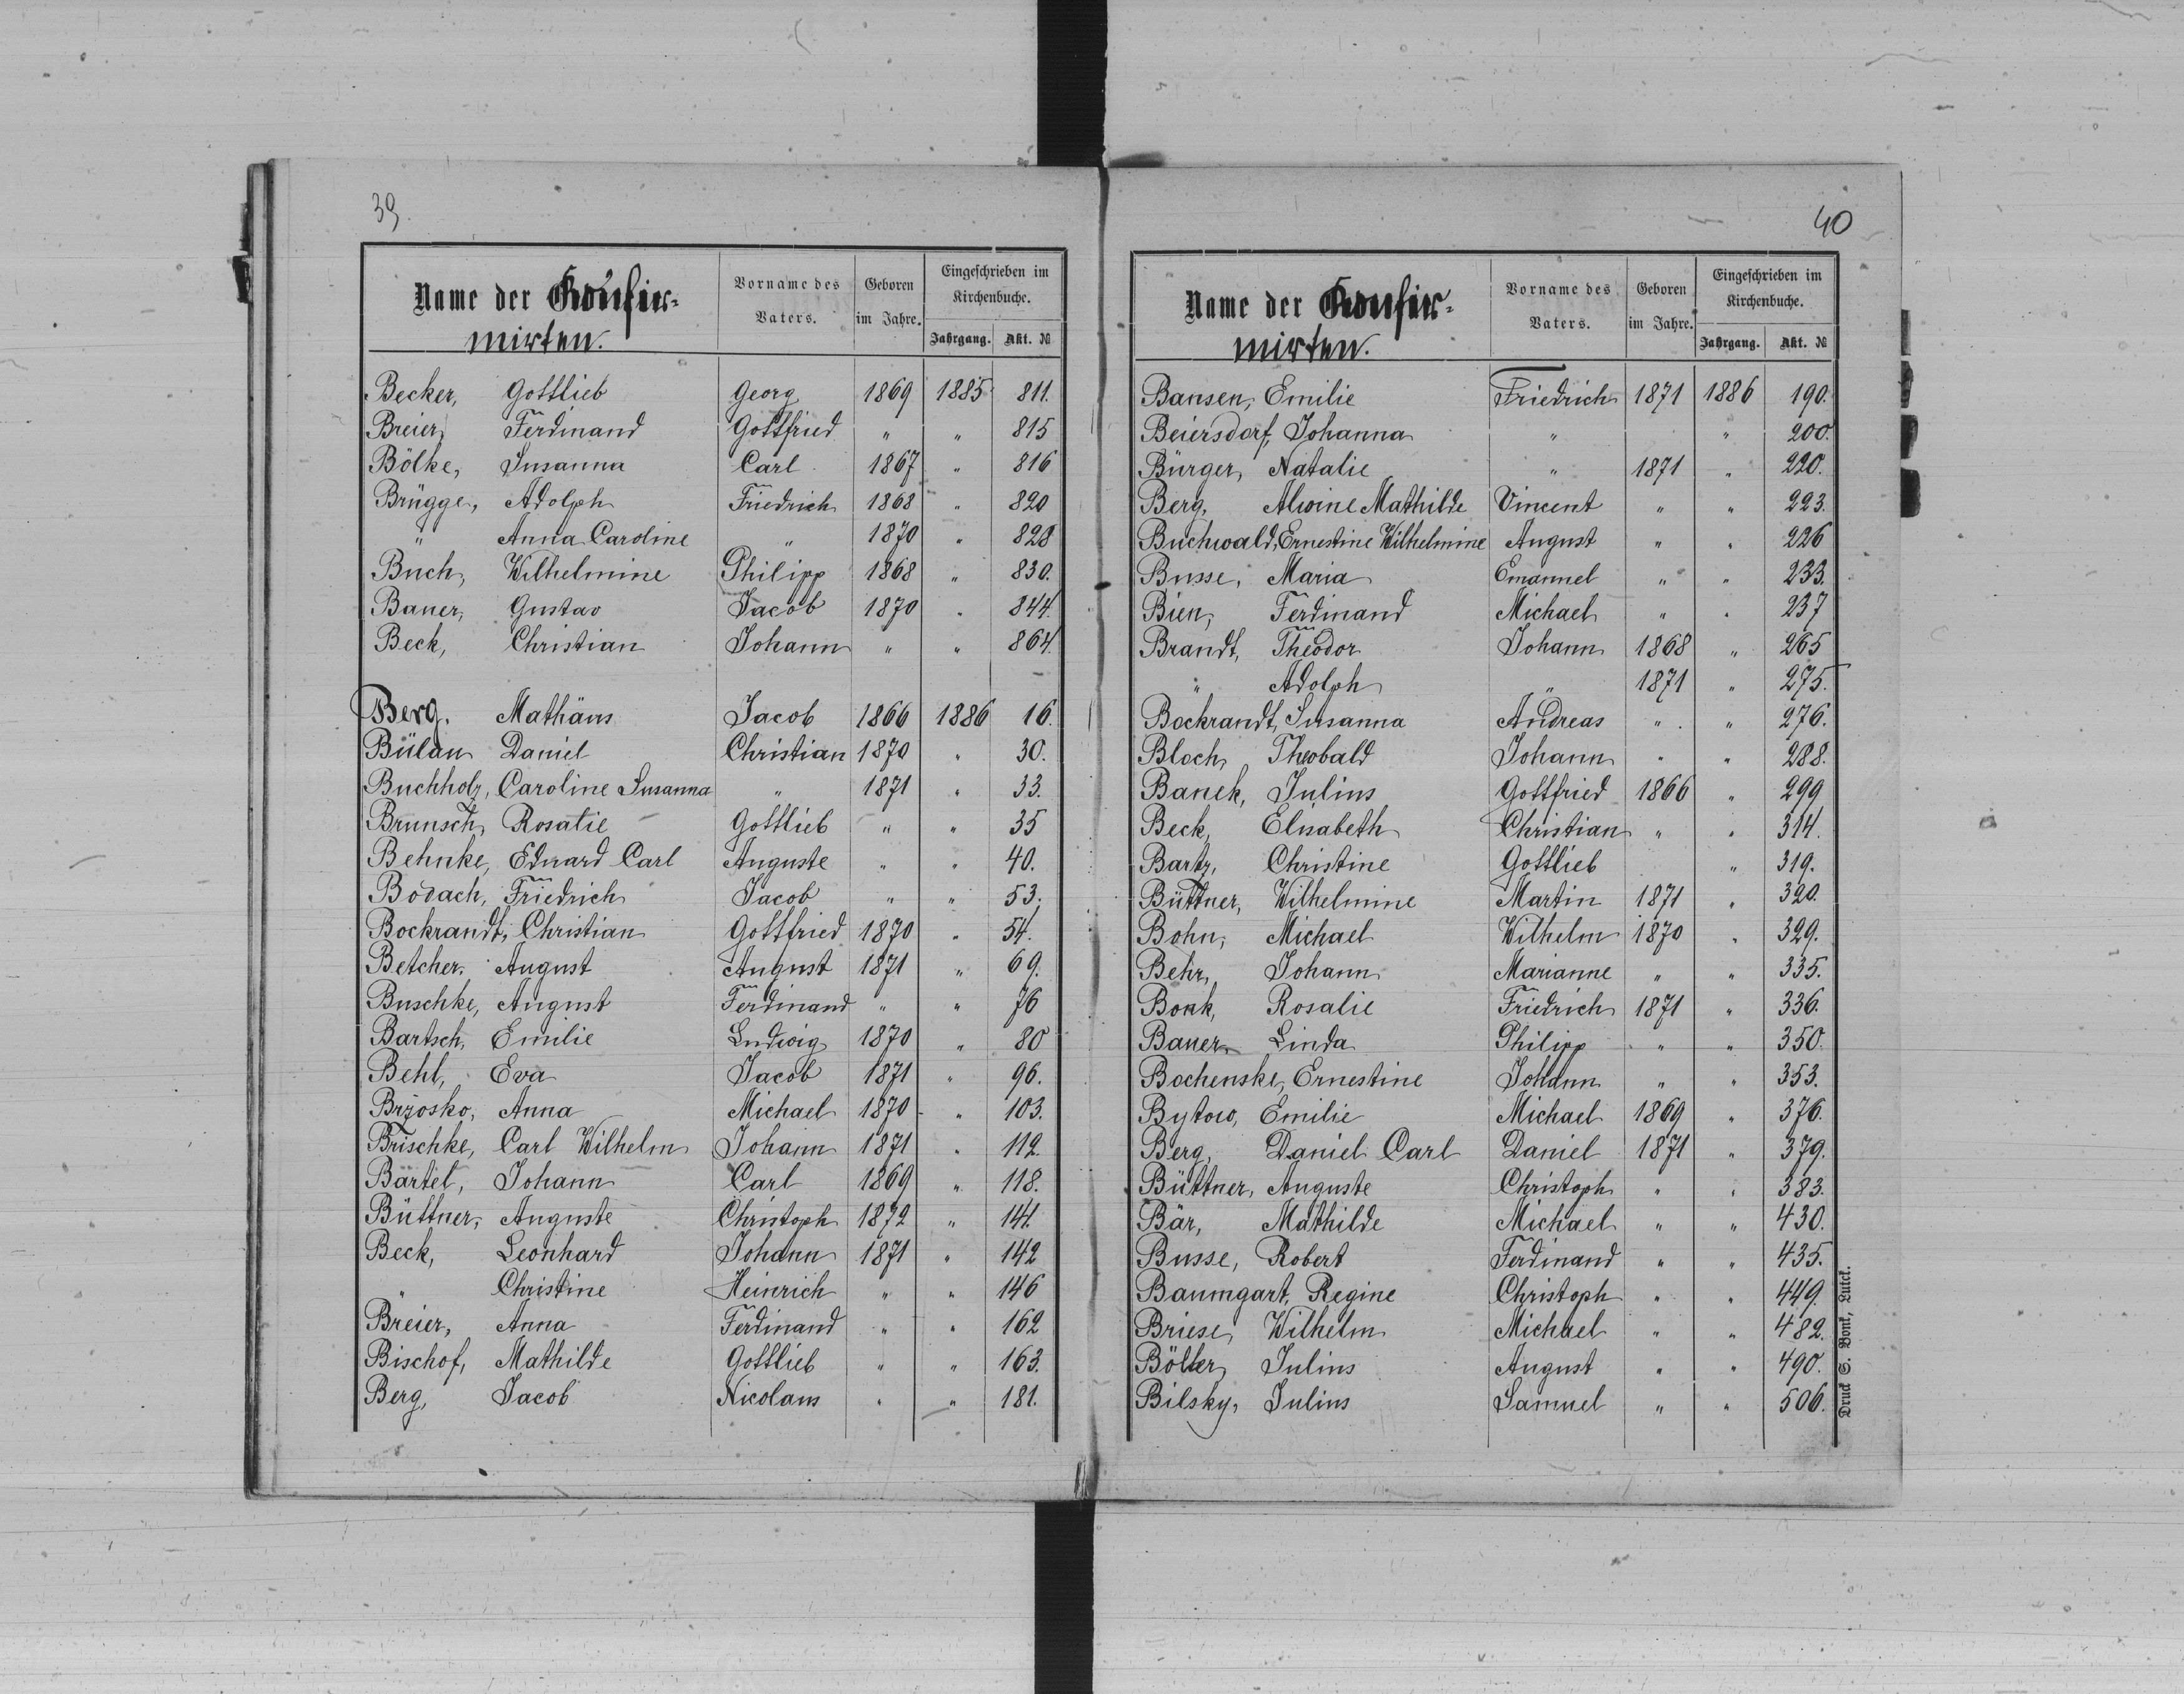 39.
Name der Konfir-
mirten.
Vorname des Vaters.
Geboren im Jahre.
Eingeschrieben im Kirchenbuche.
Jahrgang. Akt. №
Becker, Gottlieb Georg 1869 1885 811.
Breier, Ferdinand Gottfried " " 815
Bölke, Susanna Carl 1867 " 816
Brügge, Adolph Friedrich 1868 " 820
" Anna Caroline " 1870 " 828
Buch, Wilhelmine Philipp 1868 " 830.
Bauer, Gustav Jacob 1870 " 844.
Beck, Christian Johann " " 864.
Berg. Mathäus Jacob 1866 1886 16.
Bülau Daniel Christian 1870 " 30.
Buchholz, Caroline Susanna " 1871 " 33.
Brunsch, Rosalie Gottlieb " " 35
Behnke, Eduard Carl Auguste " " 40.
Bodach, Friedrich Jacob " " 53.
Bockrandt, Christian Gottfried 1870 " 54.
Betcher, August August 1871 " 69.
Buschke, August Ferdinand " " 76
Bartsch, Emilie Ludwig 1870 " 80
Behl, Eva Jacob 1871 " 96.
Brzosko, Anna Michael 1870 " 103.
Brischke, Carl Wilhelm Johann 1871 " 112.
Bärtel, Johann Carl 1869 " 118.
Büttner, Auguste Christoph 1872 " 141.
Beck, Leonhard Johann 1871 " 142
" Christine Heinrich " " 146
Breier, Anna Ferdinand " " 162
Bischof, Mathilde Gottlieb " " 163.
Berg, Jacob Nicolaus " " 181.
40
Name der Konfir-
mirten.
Vorname des Vaters.
Geboren im Jahre.
Eingeschrieben im Kirchenbuche.
Jahrgang. Akt. №
Bansen, Emilie Friedrich 1871 1886 190.
Beiersdorf, Johanna " " 200.
Bürger, Natalie " 1871 " 220.
Berg, Alwine Mathilde Vincent " " 223.
Buchwald, Ernestine Wilhelmine August " " 226
Busse, Maria Emanuel " " 233.
Bien, Ferdinand Michael " " 237
Brandt, Theodor Johann 1868 " 265
" Adolph " 1871 " 275.
Bockrandt, Susanna Andreas " " 276.
Bloch, Theobald Johann " " 288.
Banek, Julius Gottfried 1866 " 299
Beck, Elisabeth Christian " " 314.
Bartz, Christine Gottlieb " 319.
Büttner, Wilhelmine Martin 1871 " 320.
Bohn, Michael Wilhelm 1870 " 329.
Behr, Johann Marianne " " 335.
Bonk, Rosalie Friedrich 1871 " 336.
Bauer, Linda Philipp " " 350.
Bochenske, Ernestine Johann " " 353.
Bytow, Emilie Michael 1869 " 376.
Berg, Daniel Carl Daniel 1871 " 379.
Büttner, Auguste Christoph " " 383.
Bär, Mathilde Michael " " 430.
Busse, Robert Ferdinand " " 435.
Baumgart, Regine Christoph " " 449.
Briese, Wilhelm Michael " " 482.
Bölter, Julius August " " 490.
Bilsky, Julius Samuel " " 506.
Druck S. Bonk, Lutck.